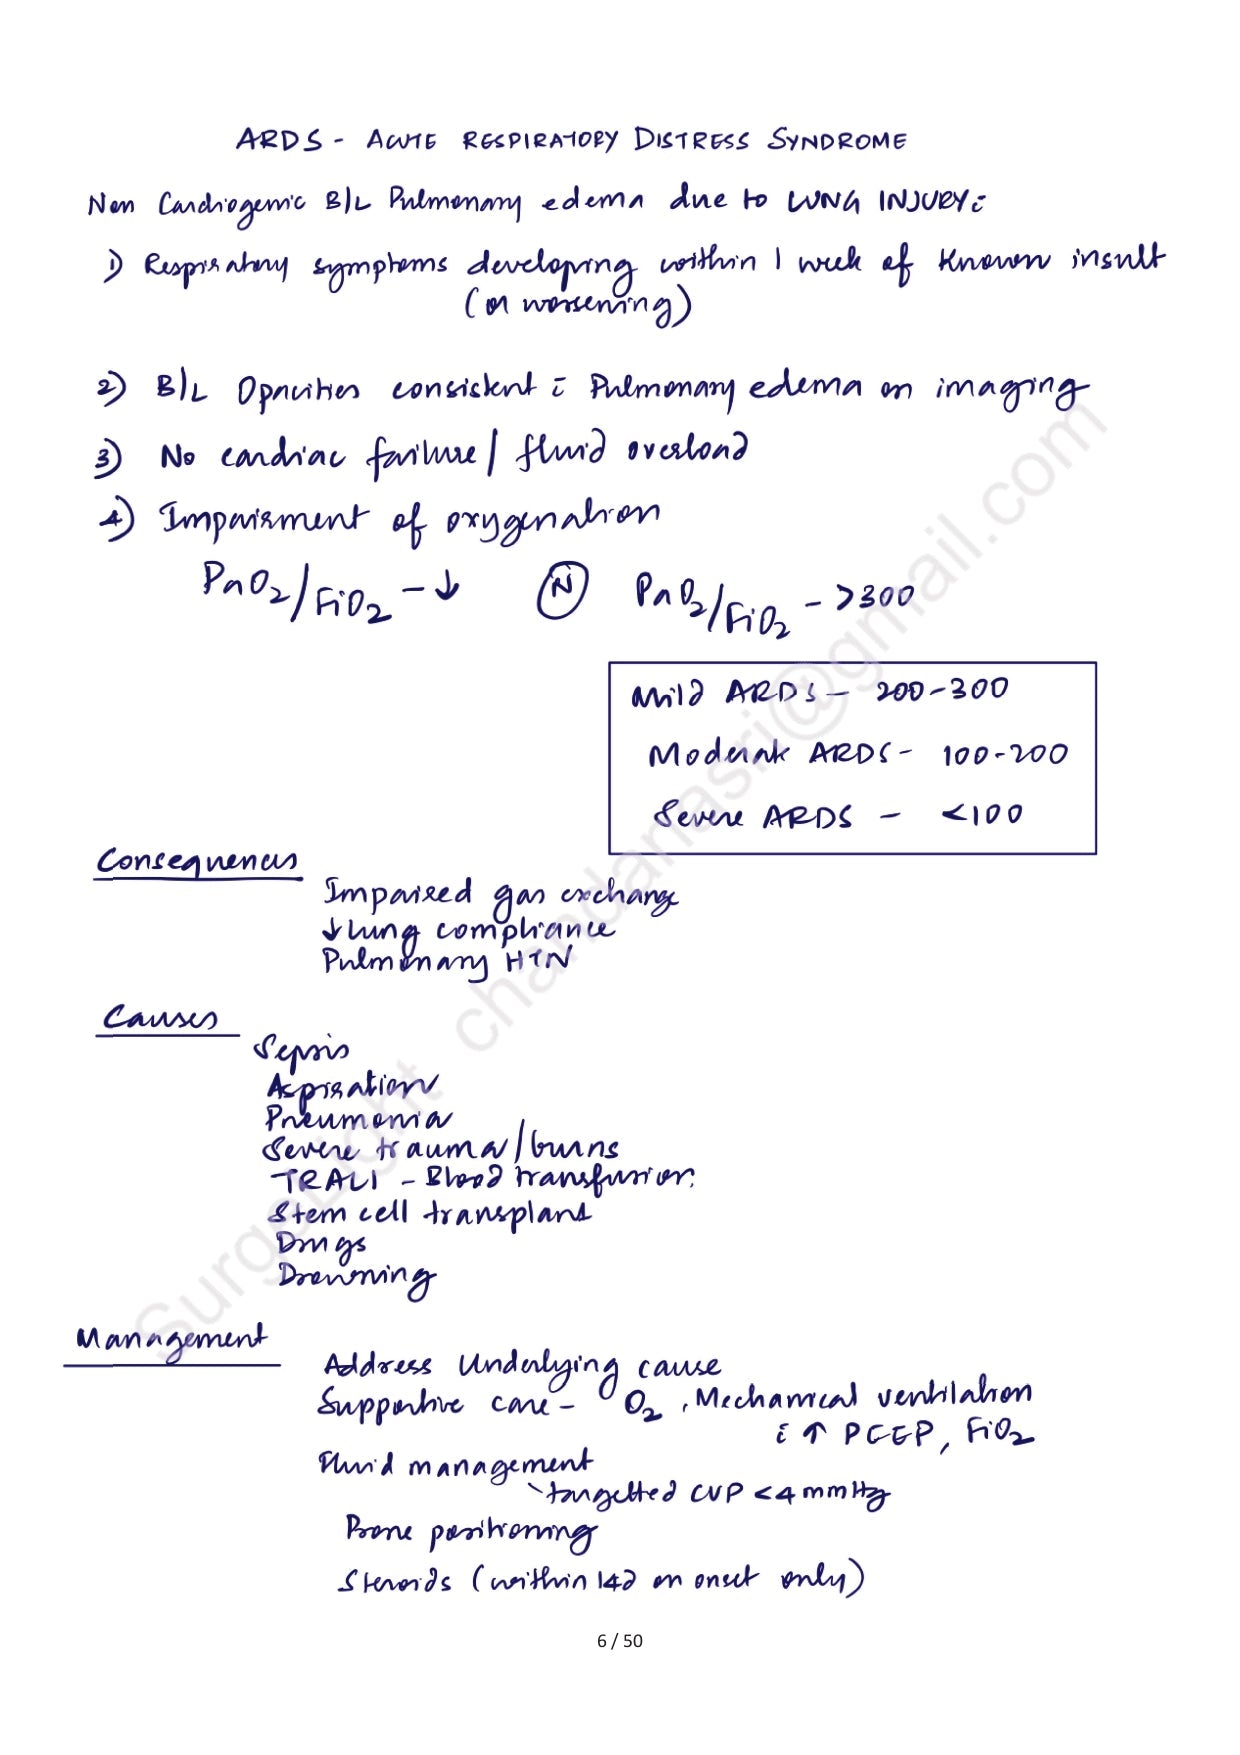 ARDS - ACUTE RESPIRATORY DISTRESS SYNDROME
Non Cardiogenic B/L Pulmonary edema due to LUNG INJURY:
1) Respiratory symptoms developing within 1 week of known insult
(or worsening)
2) B/L Opacities consistent c̄ Pulmonary edema on imaging
3) No cardiac failure / fluid overload
4) Impairment of oxygenation
PaO2/FiO2 - ↓ (N) PaO2/FiO2 - >300
Mild ARDS - 200-300
Moderate ARDS - 100-200
Severe ARDS - <100
Consequences
Impaired gas exchange
↓ Lung compliance
Pulmonary HTN
Causes
Sepsis
Aspiration
Pneumonia
Severe trauma/burns
TRALI - Blood transfusion
Stem cell transplant
Drugs
Drowning
Management
Address Underlying cause
Supportive care - O2, Mechanical ventilation
c̄ ↑ PEEP, FiO2
Fluid management
targetted CVP <4 mmHg
Prone positioning
Steroids (within 14d on onset only)
SurgeLight chandanasri@gmail.com
6 / 50